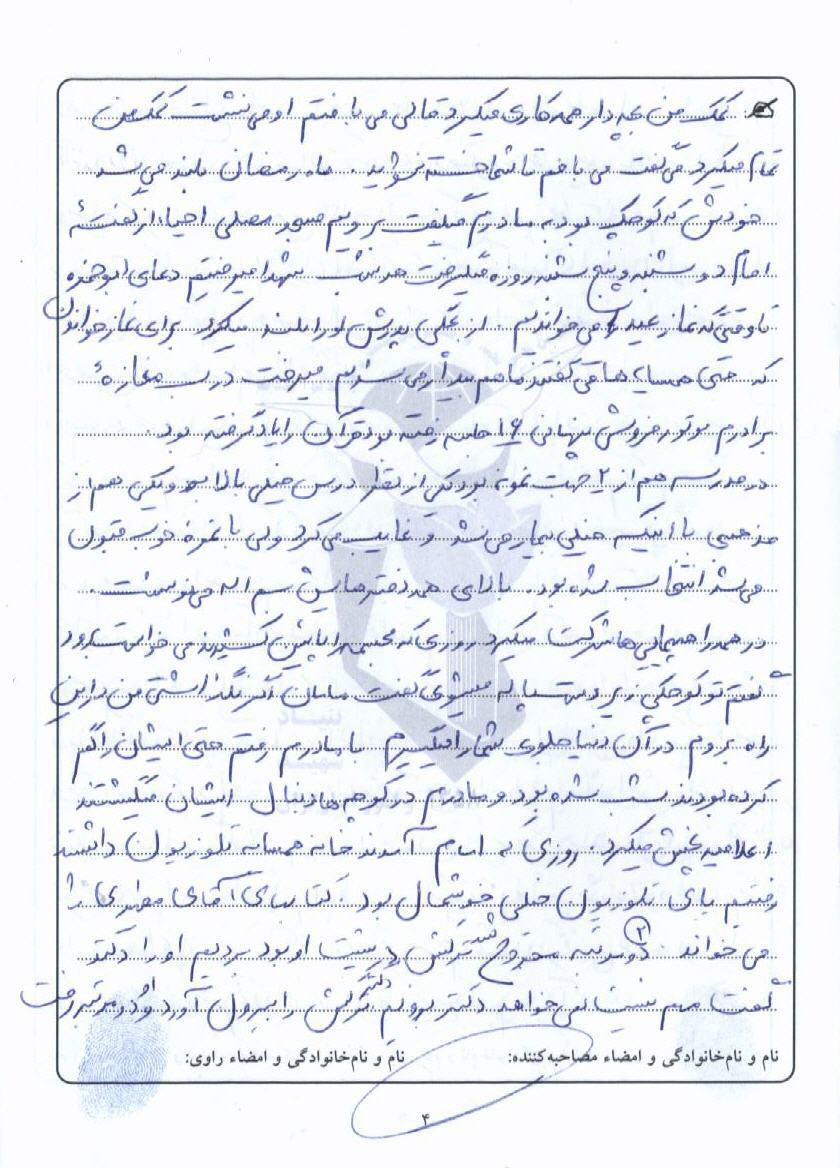 کمک من بچه‌دار همه‌کاری میکرد قالی می‌بافتم او می نشست کمک من
تمام میکرد می‌گفت می‌بافم تا شما خسته نشوید. ماه رمضان بلند می‌شد
خودش که کوچک بود به مادرم میگفت برویم مسجد مصلی احیاء، از گفتهٔ
امام دوشنبه و پنج شنبه روزه میگرفت هر شب شهدا میرفتیم دعای ابوحمزه
تا وقتی که نماز عید را می‌خواندیم. از بچگی پدرش او را بلند میکرد برای نماز خواندن
که حتی همسایه‌ها می گفتند ما هم بیدار می شدیم میرفت درب مغازهٔ
برادرم موتور فروشی پنهانی ۱۶ جلسه رفته بود قرآن را یاد گرفته بود.
در مدرسه هم از ۲ جهت نمونه بود یکی از نظر درس خیلی بالا بود و یکی هم از
مذهبی با اینکه خیلی بیمار می‌شد و غایب می‌کرد ولی با نمره خوب قبول
می شد انتخاب شده بود. بالای همه دفترهایش بسم اله می‌نوشت.
در همه راهپیمایی‌ها شرکت میکرد روزی که مجسمه را پایین کشیدند می خواست برود
گفتم تو کوچکی زیر دست و پا له میشوی گفت مامان اگر نگذاشتی من در این
راه بروم در آن دنیا جلوی شما را میگیرم با مادرم رفتم حتی ایشان را گم
کرده بودند شب شده بود و مادرم در کوچه‌ها دنبال ایشان میگشتند
اعلامیه پخش میکرد. روزی که امام آمدند خانه همسایه تلوزیون داشتند
رفتیم پای تلوزیون خیلی خوشحال بود. کتابهای آقای مطهری را
می خواند. ۲ دو مرتبه مجروح شد ترکش در پشت او بود بردیم او را دکتر
گفت مهم نیست نمی‌خواهد دکتر برویم دکتر ترکش را بیرون آورد و او دو مرتبه رفت
نام و نام‌خانوادگی و امضاء مصاحبه‌کننده: نام و نام‌خانوادگی و امضاء راوی:
۴